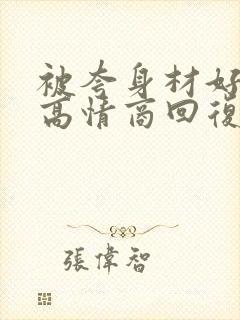 被夸身材好
高情商回復
張偉智